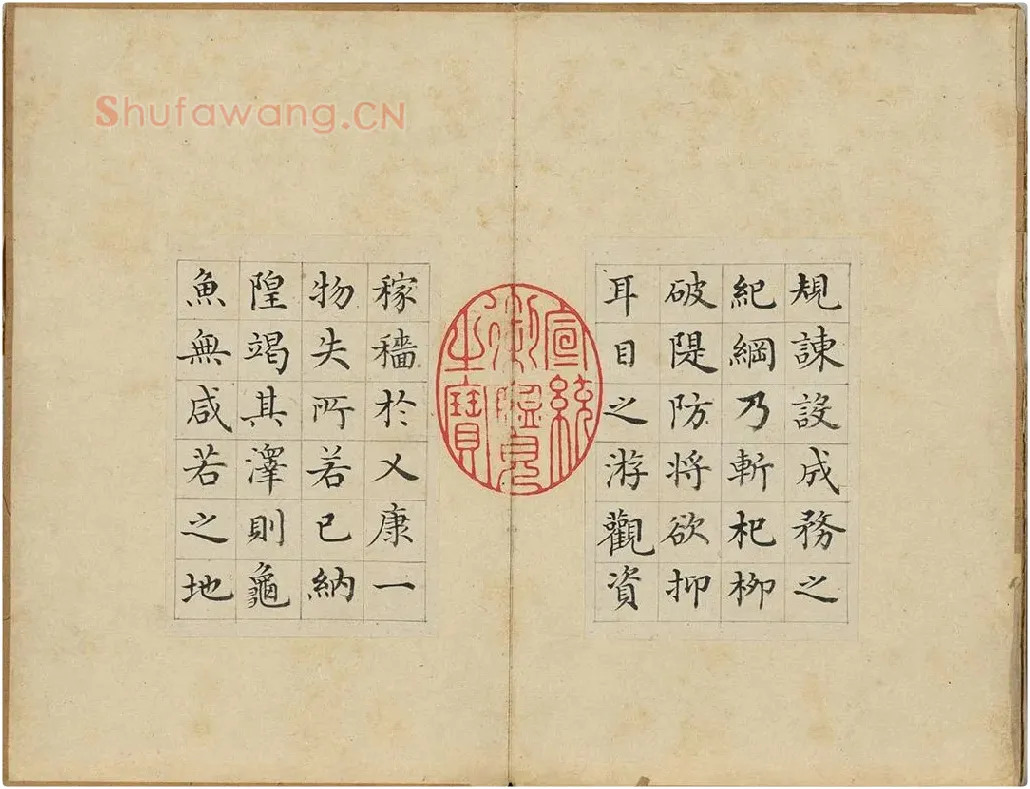 Shufawang.CN
規諫設成務之
紀綱乃斬杞柳
破隄防将欲抑
耳目之游觀資
宣統
御覽
之寶
稼穡於乂康一
物失所若已納
隍竭其澤則龜
魚無咸若之地